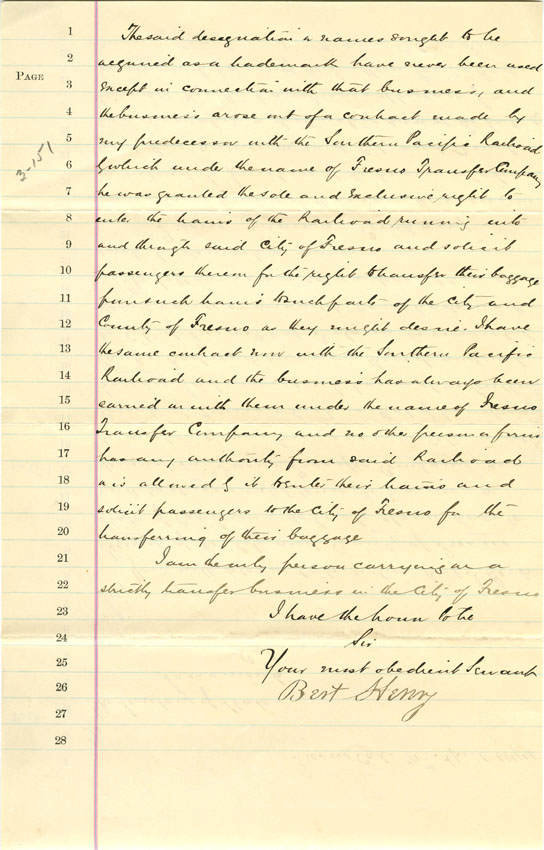 PAGE
3-151
1 The said designation or names sought to be
2 acquired as a trademark have never been used
3 except in connection with that business, and
4 the business arose out of a contract made by
5 my predecessor with the Southern Pacific Railroad
6 by which under the name of Fresno Transfer Company
7 he was granted the sole and exclusive right to
8 enter the trains of the Railroad running into
9 and through said City of Fresno and solicit
10 passengers thereon for the right to transfer their baggage
11 from such trains to such parts of the City and
12 County of Fresno as they might desire. I have
13 the same contract now with the Southern Pacific
14 Railroad and the business has always been
15 carried on with them under the name of Fresno
16 Transfer Company and no other person or firm
17 has any authority from said Railroad
18 or is allowed by it to enter their trains and
19 solicit passengers to the City of Fresno for the
20 transferring of their baggage
21 I am the only person carrying on a
22 strictly transfer business in the City of Fresno
23 I have the honor to be
24 Sir
25 Your most obedient Servant
26 Bert Henry
27
28